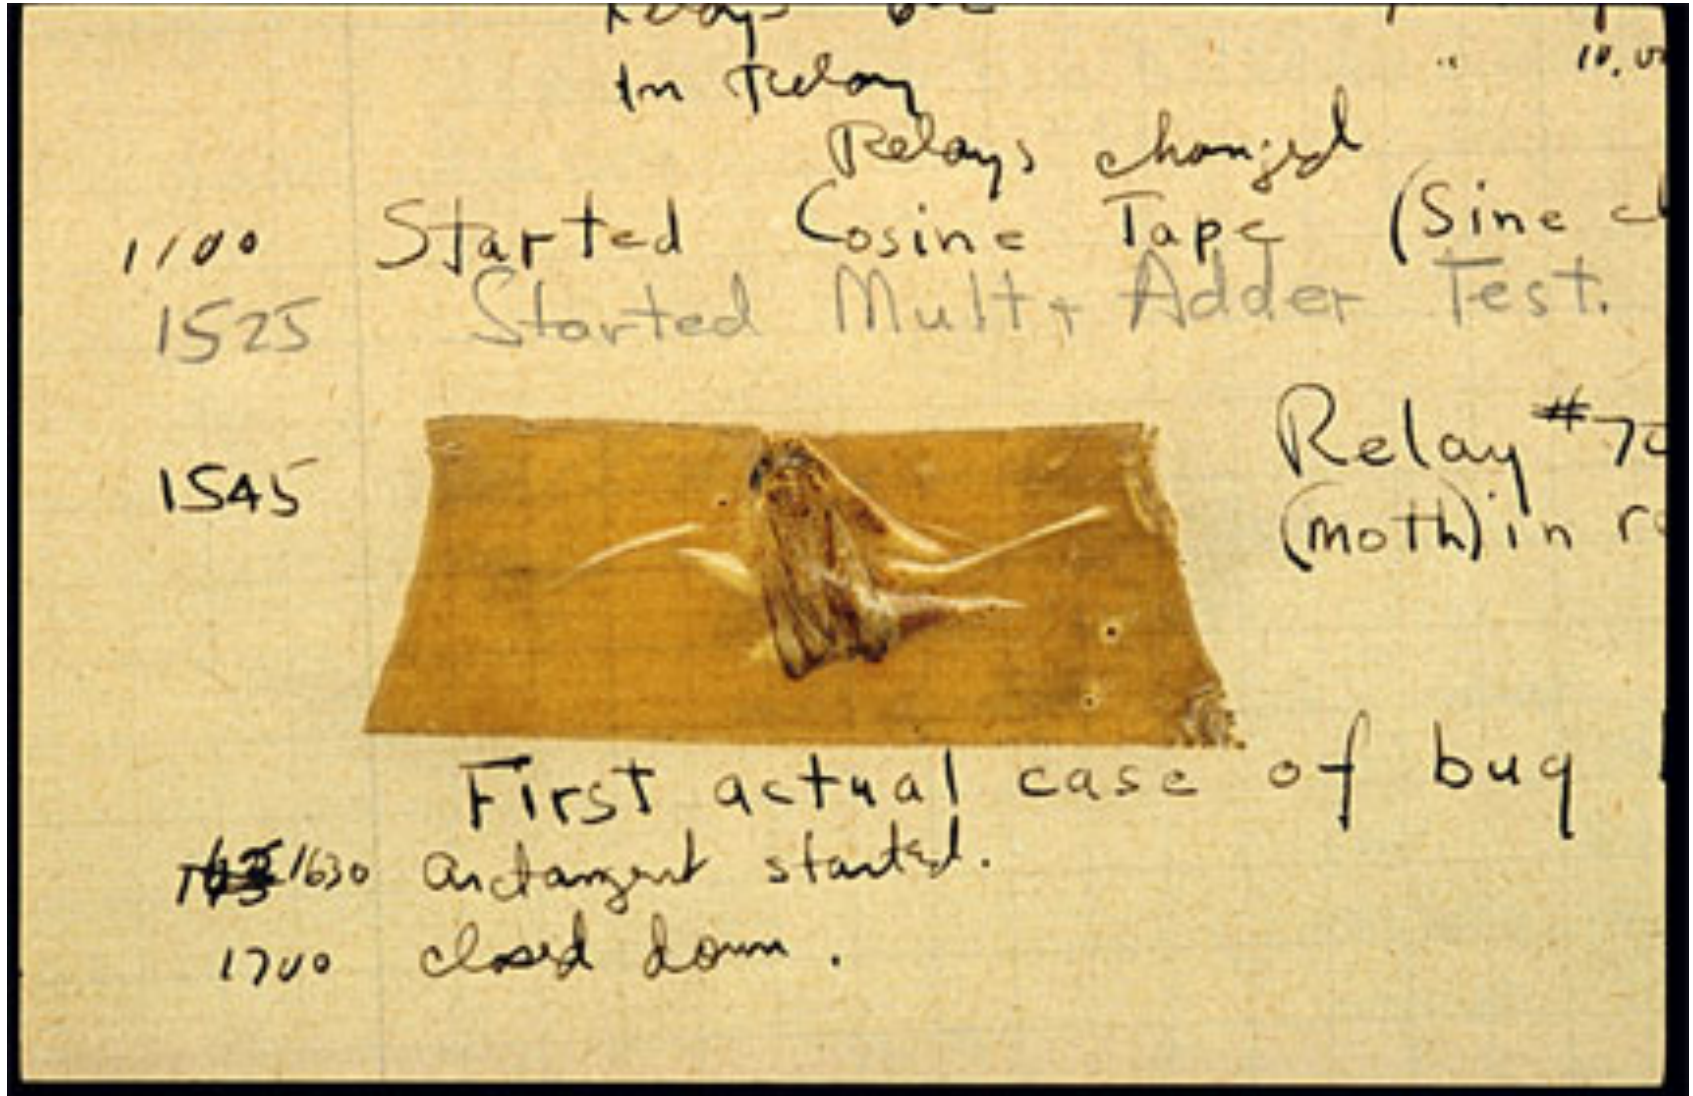 Relays
in relay
" 10.00
Relays changed
1100 Started Cosine Tape (Sine
1525 Started Mult + Adder Test.
1545 Relay #70
(moth) in
First actual case of bug
1630 arctangent started.
1700 closed down.